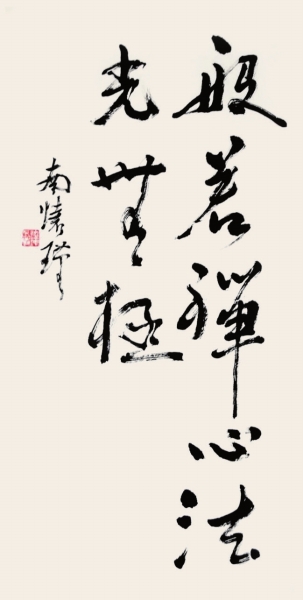 般若禅心法
光無極
南懷瑾